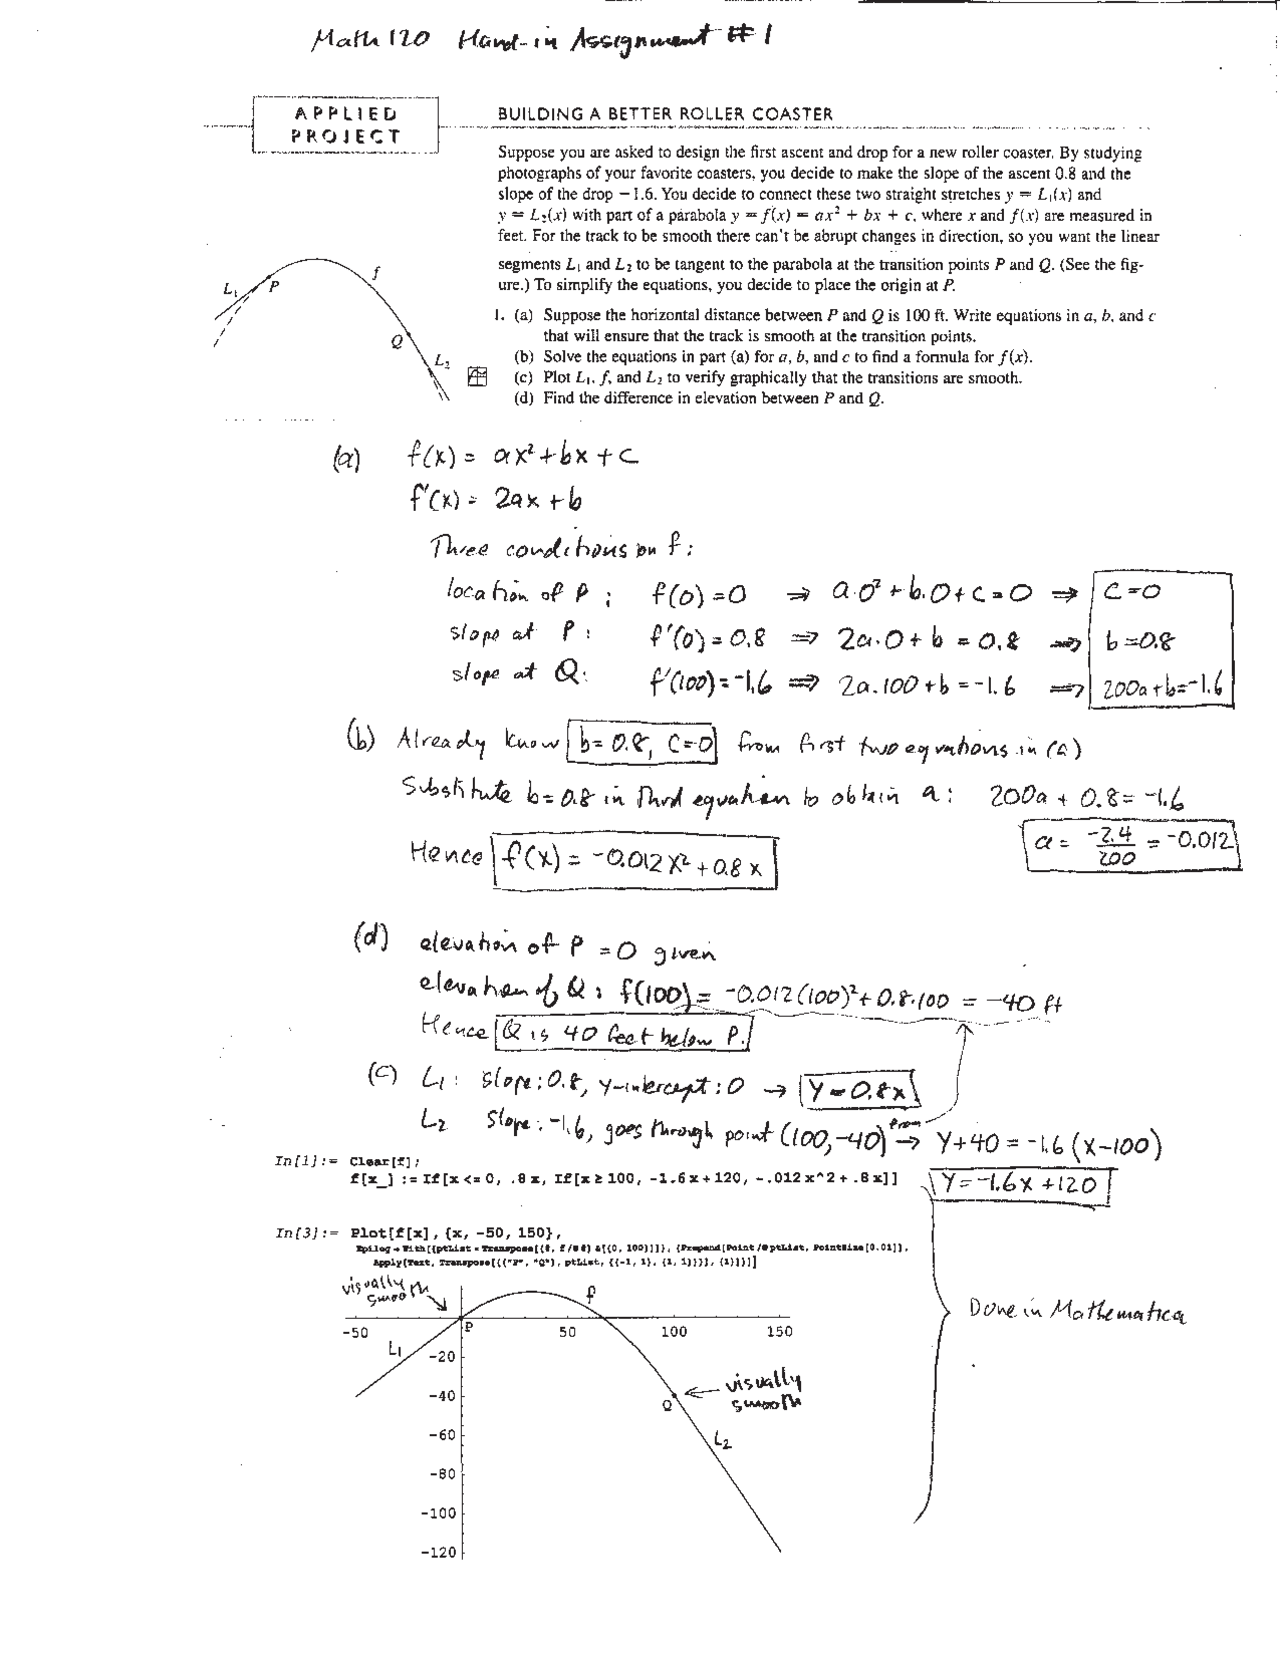 Math 120 Hand-in Assignment #1
APPLIED
PROJECT
BUILDING A BETTER ROLLER COASTER
Suppose you are asked to design the first ascent and drop for a new roller coaster. By studying
photographs of your favorite coasters, you decide to make the slope of the ascent 0.8 and the
slope of the drop −1.6. You decide to connect these two straight stretches y = L₁(x) and
y = L₂(x) with part of a parabola y = f(x) = ax² + bx + c, where x and f(x) are measured in
feet. For the track to be smooth there can't be abrupt changes in direction, so you want the linear
segments L₁ and L₂ to be tangent to the parabola at the transition points P and Q. (See the fig-
ure.) To simplify the equations, you decide to place the origin at P.
L₁ P f Q L₂
1. (a) Suppose the horizontal distance between P and Q is 100 ft. Write equations in a, b, and c
that will ensure that the track is smooth at the transition points.
(b) Solve the equations in part (a) for a, b, and c to find a formula for f(x).
(c) Plot L₁, f, and L₂ to verify graphically that the transitions are smooth.
(d) Find the difference in elevation between P and Q.
(a) f(x) = ax² + bx + c
f'(x) = 2ax + b
Three conditions on f:
location of P: f(0)=0 ⇒ a·0² + b·0 + c = 0 ⇒ c=0
slope at P: f'(0) = 0.8 ⇒ 2a·0 + b = 0.8 ⇒ b=0.8
slope at Q: f'(100) = -1.6 ⇒ 2a·100 + b = -1.6 ⇒ 200a+b=-1.6
(b) Already know b=0.8, c=0 from first two equations in (a)
Substitute b=0.8 in third equation to obtain a: 200a + 0.8 = -1.6
a = -2.4/200 = -0.012
Hence f(x) = -0.012x² + 0.8x
(d) elevation of P = 0 given
elevation of Q: f(100) = -0.012(100)² + 0.8·100 = -40 ft
Hence Q is 40 feet below P.
(c) L₁: slope: 0.8, y-intercept: 0 → y=0.8x
L₂ slope: -1.6, goes through point (100, -40) from → y+40 = -1.6(x-100)
y=-1.6x+120
In[1]:= Clear[f];
f[x_] := If[x <= 0, .8 x, If[x ≥ 100, -1.6 x + 120, -.012 x^2 + .8 x]]
In[3]:= Plot[f[x], {x, -50, 150},
Epilog → With[{ptList = Transpose[{#, f /@ #} &[{0, 100}]]}, {Prepend[Point /@ ptList, PointSize[0.01]],
Apply[Text, Transpose[{{"P", "Q"}, ptList, {{-1, 1}, {1, 1}}}], {1}]}]]
visually
smooth
f
P
-50 50 100 150
L₁
-20
-40
-60
-80
-100
-120
Q
visually
smooth
L₂
Done in Mathematica